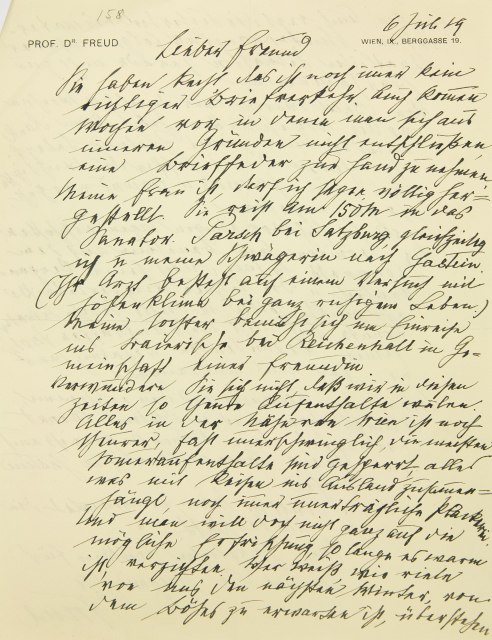 158
6 Juli 19
PROF. DR. FREUD
WIEN, IX., BERGGASSE 19.
Lieber Freund
Sie haben Recht, das ist noch immer kein
richtiger Briefverkehr. Auch kommen
Wochen vor in denen man sich aus
inneren Gründen nicht entschließen
eine Brieffeder zur Hand zu nehmen.
Meine Frau ist, darf ich sagen völlig her=
gestellt. Sie reist am 15 in das
Sanator. Parsch bei Salzburg, gleichzeitig
ich u meine Schwägerin nach Gastein.
(Ihr Arzt besteht auf einem Versuch mit
Höhenklima bei ganz ruhigem Leben.)
Meine Tochter bemüht sich um Einreise
ins Baierische bei Reichenhall in Ge-
meinschaft einer Freundin
Verwundern Sie sich nicht daß wir in diesen
Zeiten so Aufenthalte wälen.
Alles in der Näheren Wien ist noch
theurer, fast unerschwinglich, die meisten
Sommeraufenthalte sind gesperrt, alles
was mit Reisen ins Ausland zusammen-
hängt, noch immer unerträgliche Plackerei.
Und man will doch nicht ganz auf die
mögliche Erfrischung, so lange es warm
ist, verzichten. Wer weiß wie viele
von uns den nächsten Winter, von
dem Böses zu erwarten ist, überstehen